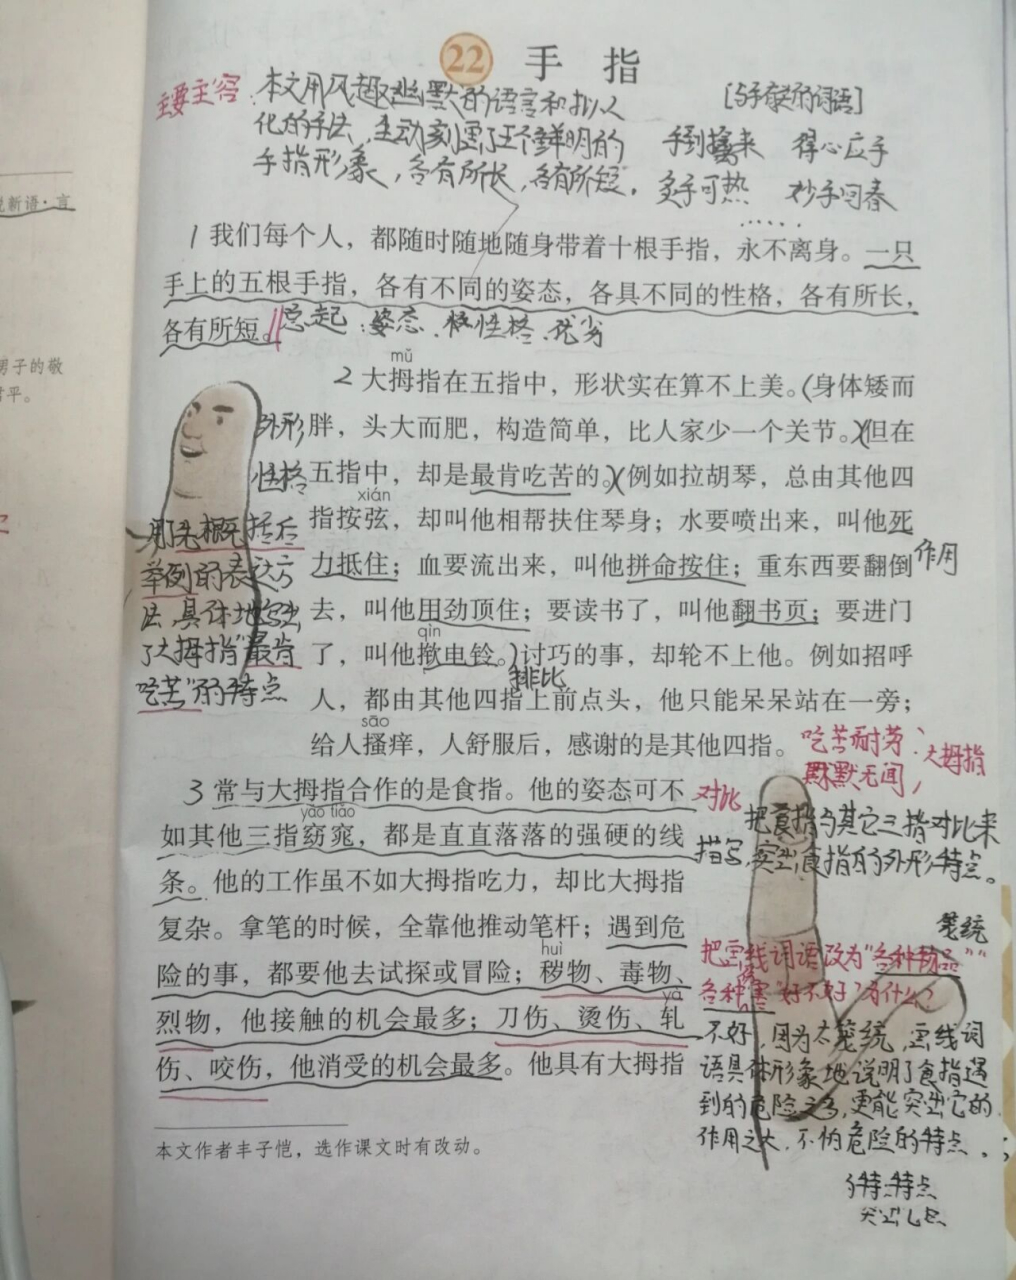 22 手指
主要主容
本文用风趣幽默的语言和拟人
化的手法,生动刻画了五个鲜明的
手指形象,各有所长,各有所短。
[与手有关的词语]
手到擒来 得心应手
炙手可热 妙手回春
……
说新语·言
1 我们每个人,都随时随地随身带着十根手指,永不离身。一只
手上的五根手指,各有不同的姿态,各具不同的性格,各有所长,
各有所短。
总起:姿态、性格、优劣
男子的敬
mǔ
2 大拇指在五指中,形状实在算不上美。(身体矮而
外形
胖,头大而肥,构造简单,比人家少一个关节。)(但在
性格
五指中,却是最肯吃苦的。)(例如拉胡琴,总由其他四
xián
指按弦,却叫他相帮扶住琴身;水要喷出来,叫他死
力抵住;血要流出来,叫他拼命按住;重东西要翻倒
作用
去,叫他用劲顶住;要读书了,叫他翻书页;要进门
qìn
了,叫他揿电铃。)讨巧的事,却轮不上他。例如招呼
排比
人,都由其他四指上前点头,他只能呆呆站在一旁;
sāo
给人搔痒,人舒服后,感谢的是其他四指。
用先概括后
举例的表达方
法,具体地写出
了大拇指“最肯
吃苦”的特点
吃苦耐劳、
默默无闻,
大拇指
3 常与大拇指合作的是食指。他的姿态可不
yǎo tiǎo
如其他三指窈窕,都是直直落落的强硬的线
条。他的工作虽不如大拇指吃力,却比大拇指
复杂。拿笔的时候,全靠他推动笔杆;遇到危
huì
险的事,都要他去试探或冒险;秽物、毒物、
yà
烈物,他接触的机会最多;刀伤、烫伤、轧
伤、咬伤,他消受的机会最多。他具有大拇指
对比
把食指与其它三指对比来
描写,突出食指的外形特点。
笼统
把画线词语改为“各种物品”“
各种伤害”好不好?为什么?
不好,因为太笼统,画线词
语具体形象地说明了食指遇
到的危险之多,更能突出它的
作用之大,不怕危险的特点。
本文作者丰子恺,选作课文时有改动。
特点